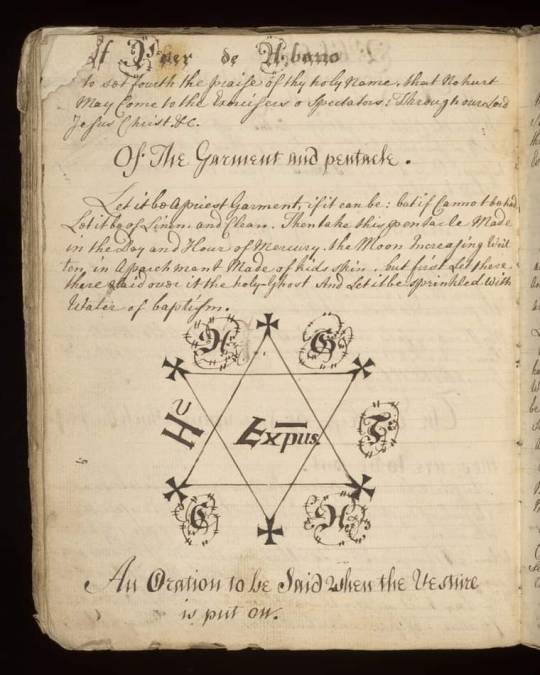 of Peter de Abano
to set fourth the praise of thy holy Name, that No hurt
May Come to the Exorcisers or Spectators: Through our Lord
Jesus Christ &c.
Of The Garment and pentacle.
Let it be a priest Garment, if it can be: but if Cannot be had
Let it be of Linin and Clean. Then take this pentacle Made
in the Day and Hour of Mercury, the Moon Increasing Writ-
ten in A parchment Made of kids skin. but first Let there
there said over it the holy-Ghost And Let it be Sprinkled With
Water of baptism.
A G
H Expus T
C A
An Oration to be Said When the Vesture
is put on.